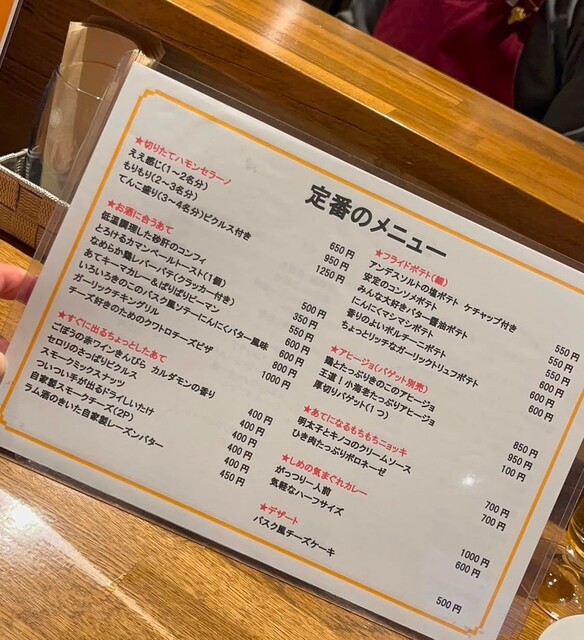 定番のメニュー
★切りたてハモンセラーノ
ええ感じ(1〜2名分) 650円
もりもり(2〜3名分) 950円
てんこ盛り(3〜4名分)ピクルス付き 1250円
★お酒に合うあて
低温調理した砂肝のコンフィ 500円
とろけるカマンベールトースト(1個) 350円
なめらか鶏レバーパテ(クラッカー付き) 550円
あてキーマカレー&ぱりぱりピーマン 600円
いろいろきのこのバスク風ソテーにんにくバター風味 600円
ガーリックチキングリル 800円
チーズ好きのためのクワトロチーズピザ 1000円
★すぐに出るちょっとしたあて
ごぼうの赤ワインきんぴら カルダモンの香り 400円
セロリのさっぱりピクルス 400円
スモークミックスナッツ 400円
ついつい手が出るドライいちじく 400円
自家製スモークチーズ(2P) 400円
ラム酒のきいた自家製レーズンバター 450円
★フライドポテト(鱈)
アンデスソルトの塩ポテト ケチャップ付き 550円
安定のコンソメポテト 550円
みんな大好きバター醤油ポテト 550円
にんにくマシマシポテト 600円
香りのよいポルチーニポテト 600円
ちょっとリッチなガーリックトリュフポテト 600円
★アヒージョ(バゲット別売)
鶏とたっぷりきのこのアヒージョ 850円
王道!小海老たっぷりアヒージョ 950円
厚切りバゲット(1つ) 100円
★あてになるもちもちニョッキ
明太子とキノコのクリームソース 700円
ひき肉たっぷりボロネーゼ 700円
★しめの気まぐれカレー
がっつり一人前 1000円
気軽なハーフサイズ 600円
★デザート
バスク風チーズケーキ 500円